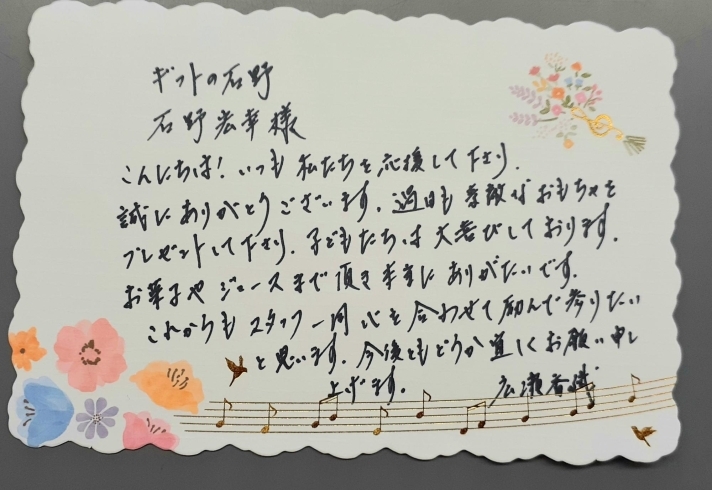 ギフトの石野
石野宏幸様
こんにちは！いつも私たちを応援して下さり、
誠にありがとうございます。過日も素敵なおもちゃを
プレゼントして下さり、子どもたちは大喜びしております。
お菓子やジュースまで頂き本当にありがたいです。
これからもスタッフ一同心を合わせて励んで参りたい
と思います。今後ともどうか宜しくお願い申し
上げます。 広瀬香織